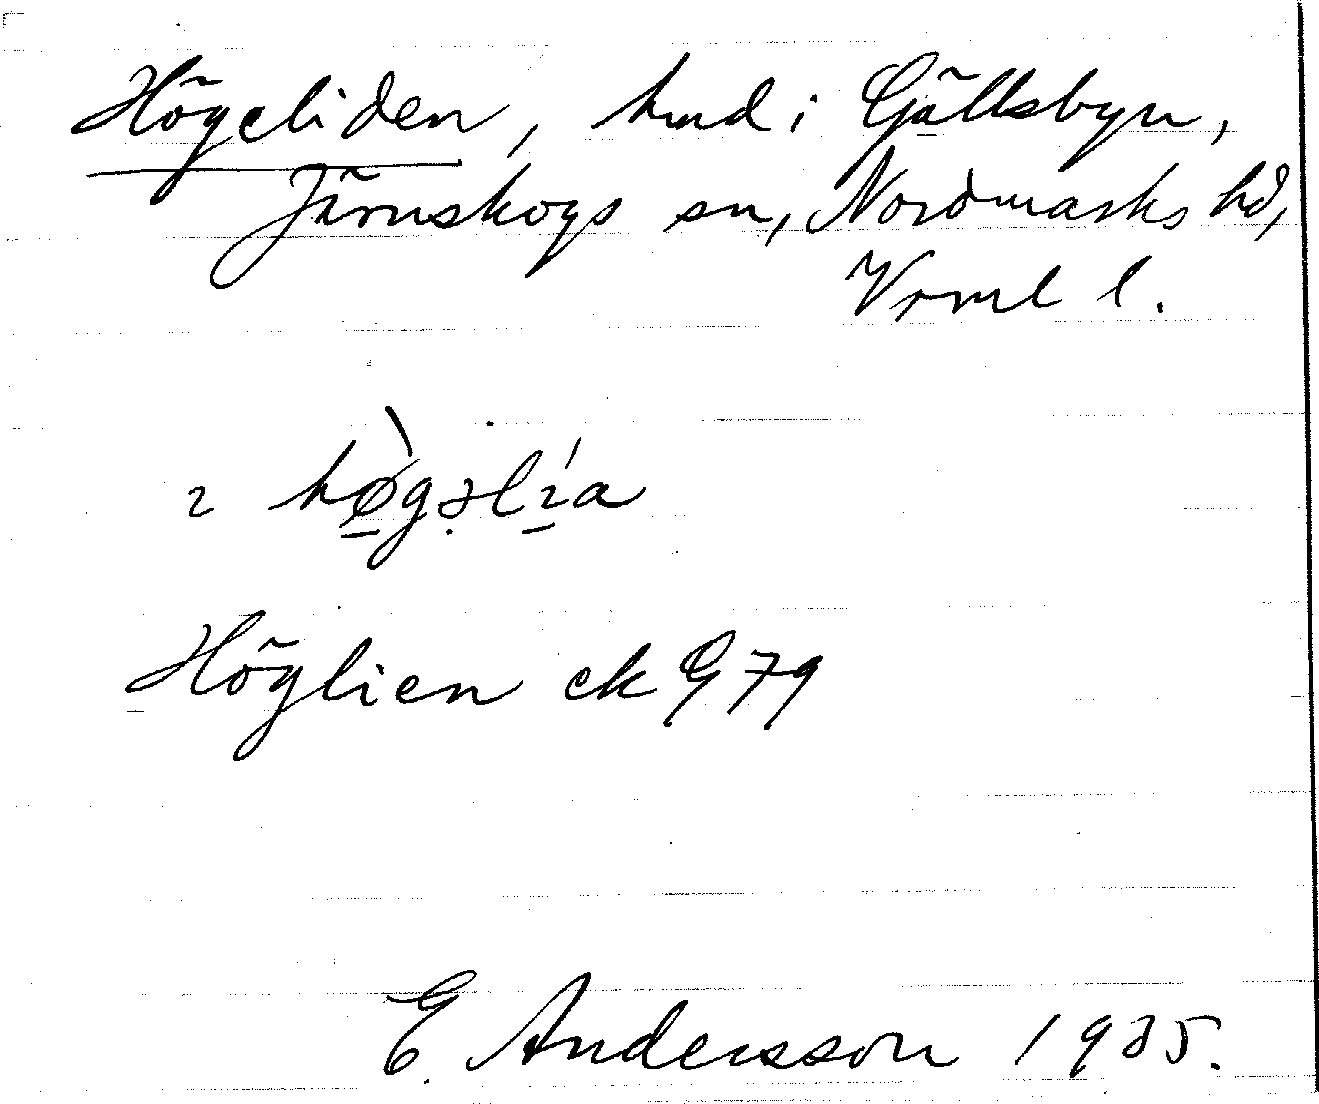 Högeliden, hmd i Gällsbyn,
Järnskogs sn, Nordmarks hd,
Vrml l.
ɩ hø̀gəlɩ́a
Höglien ek G 79
E. Andersson 1935.